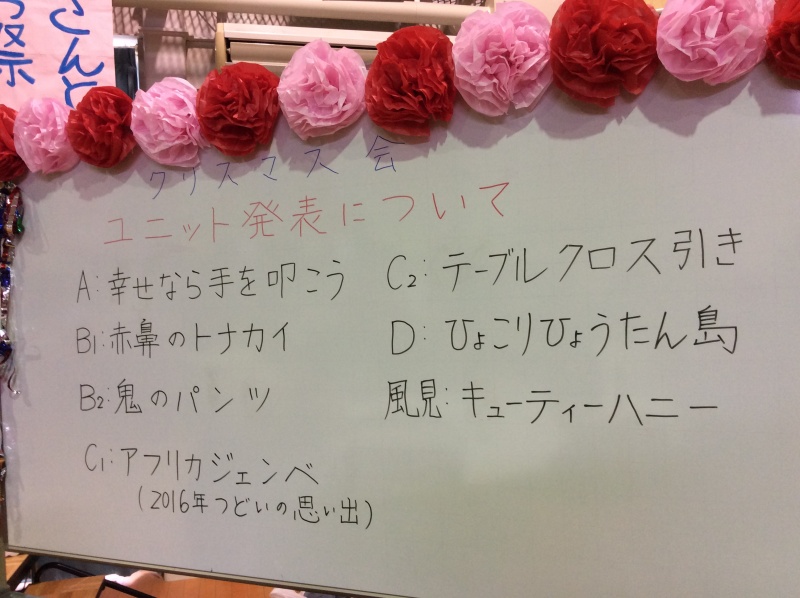 クリスマス会
ユニット発表について
A:幸せなら手を叩こう
B1:赤鼻のトナカイ
B2:鬼のパンツ
C1:アフリカジェンベ
(2016年つどいの思い出)
C2:テーブルクロス引き
D:ひょこりひょうたん島
風見:キューティーハニー